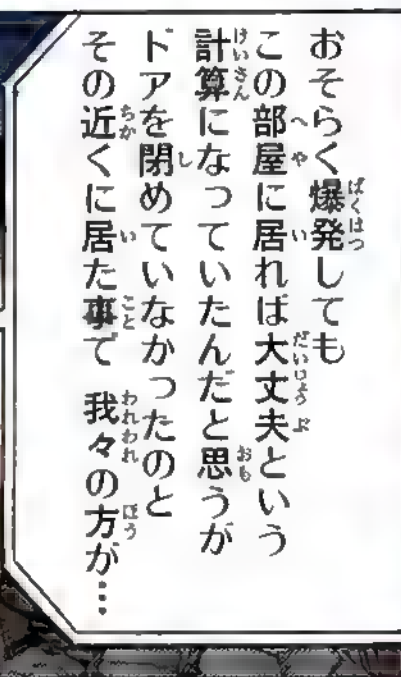 おそらく爆発しても
この部屋に居れば大丈夫という
計算になっていたんだと思うが
ドアを閉めていなかったのと
その近くに居た事で 我々の方が…